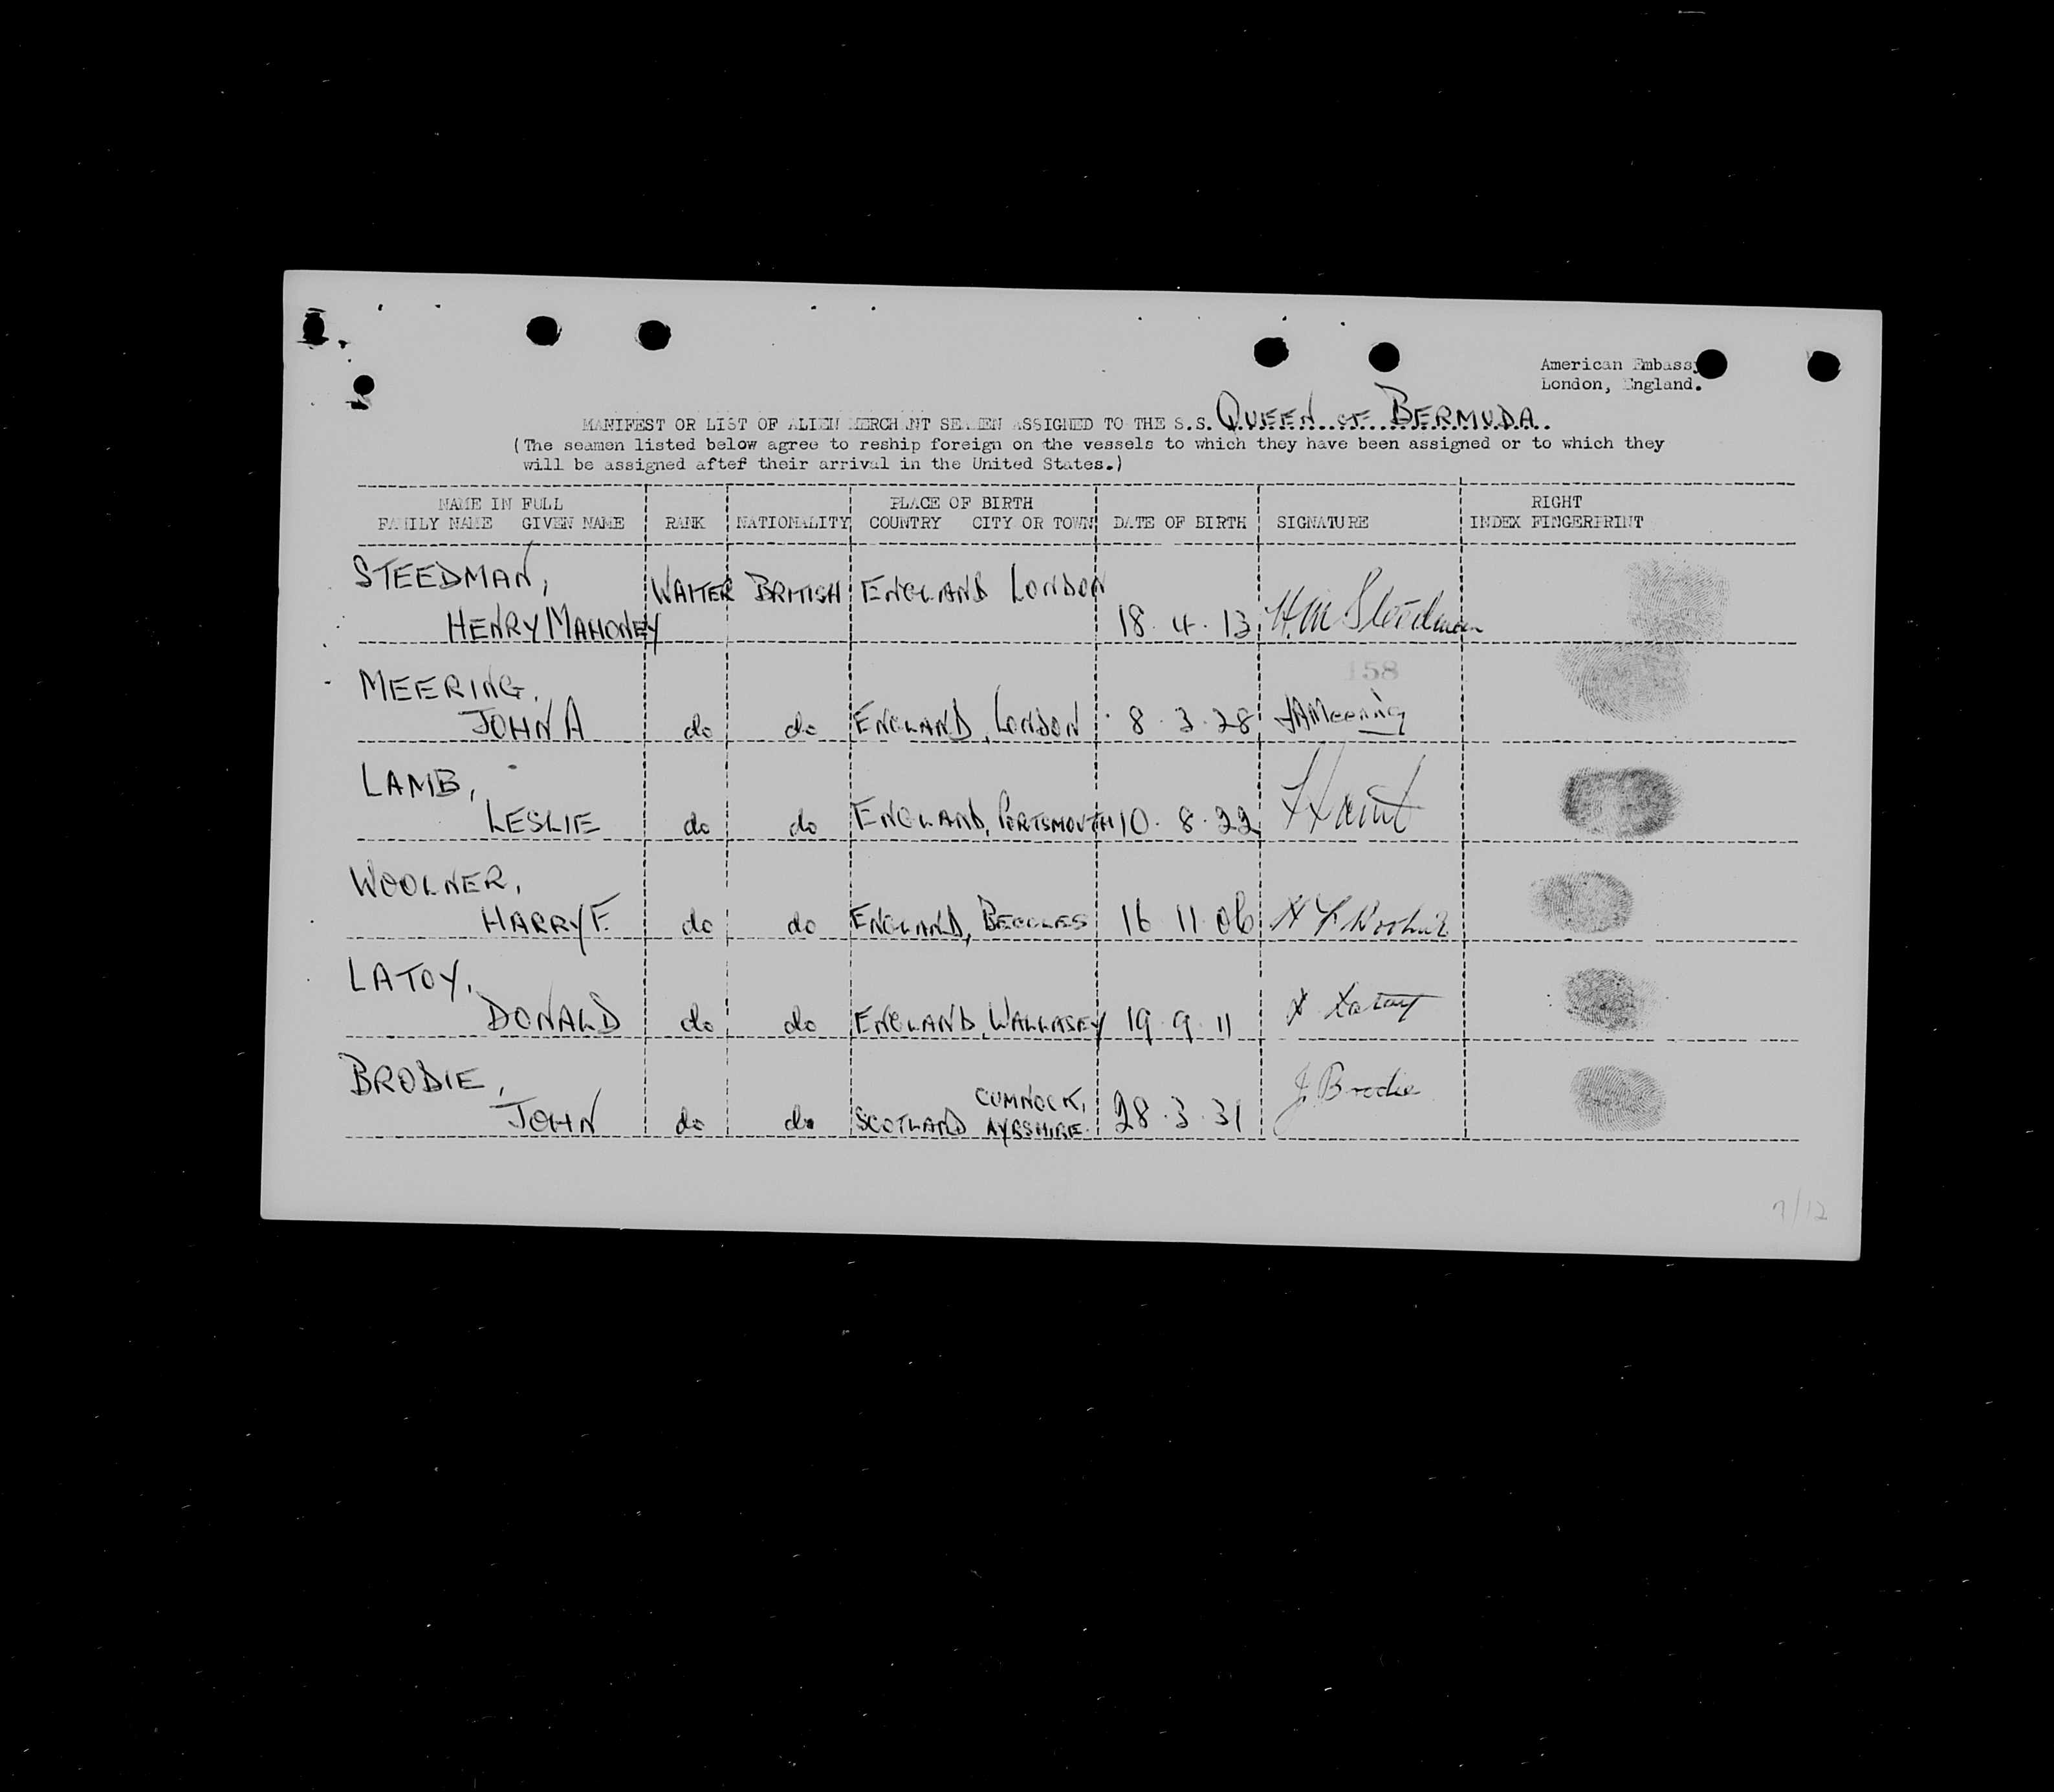 American Embassy
London, England.
MANIFEST OR LIST OF ALIEN MERCHANT SEAMEN ASSIGNED TO THE S.S. QUEEN OF BERMUDA.
(The seamen listed below agree to reship foreign on the vessels to which they have been assigned or to which they
will be assigned after their arrival in the United States.)
NAME IN FULL PLACE OF BIRTH RIGHT
FAMILY NAME GIVEN NAME RANK NATIONALITY COUNTRY CITY OR TOWN DATE OF BIRTH SIGNATURE INDEX FINGERPRINT
STEEDMAN,
WAITER BRITISH ENGLAND LONDON
HENRY MAHONEY 18.4.13 H.M Steedman
158
MEERING,
JOHN A do do ENGLAND, LONDON 8.3.28 JAMeering
LAMB,
LESLIE do do ENGLAND, PORTSMOUTH 10.8.22 L Lamb
WOOLNER,
HARRY F. do do ENGLAND, BECCLES 16 11.06 H F Woolner
LATOY,
DONALD do do ENGLAND, WALLASEY 19.9.11 D Latoy
BRODIE,
J. Brodie
CUMNOCK,
JOHN do do SCOTLAND AYRSHIRE. 28.3.31
7/12